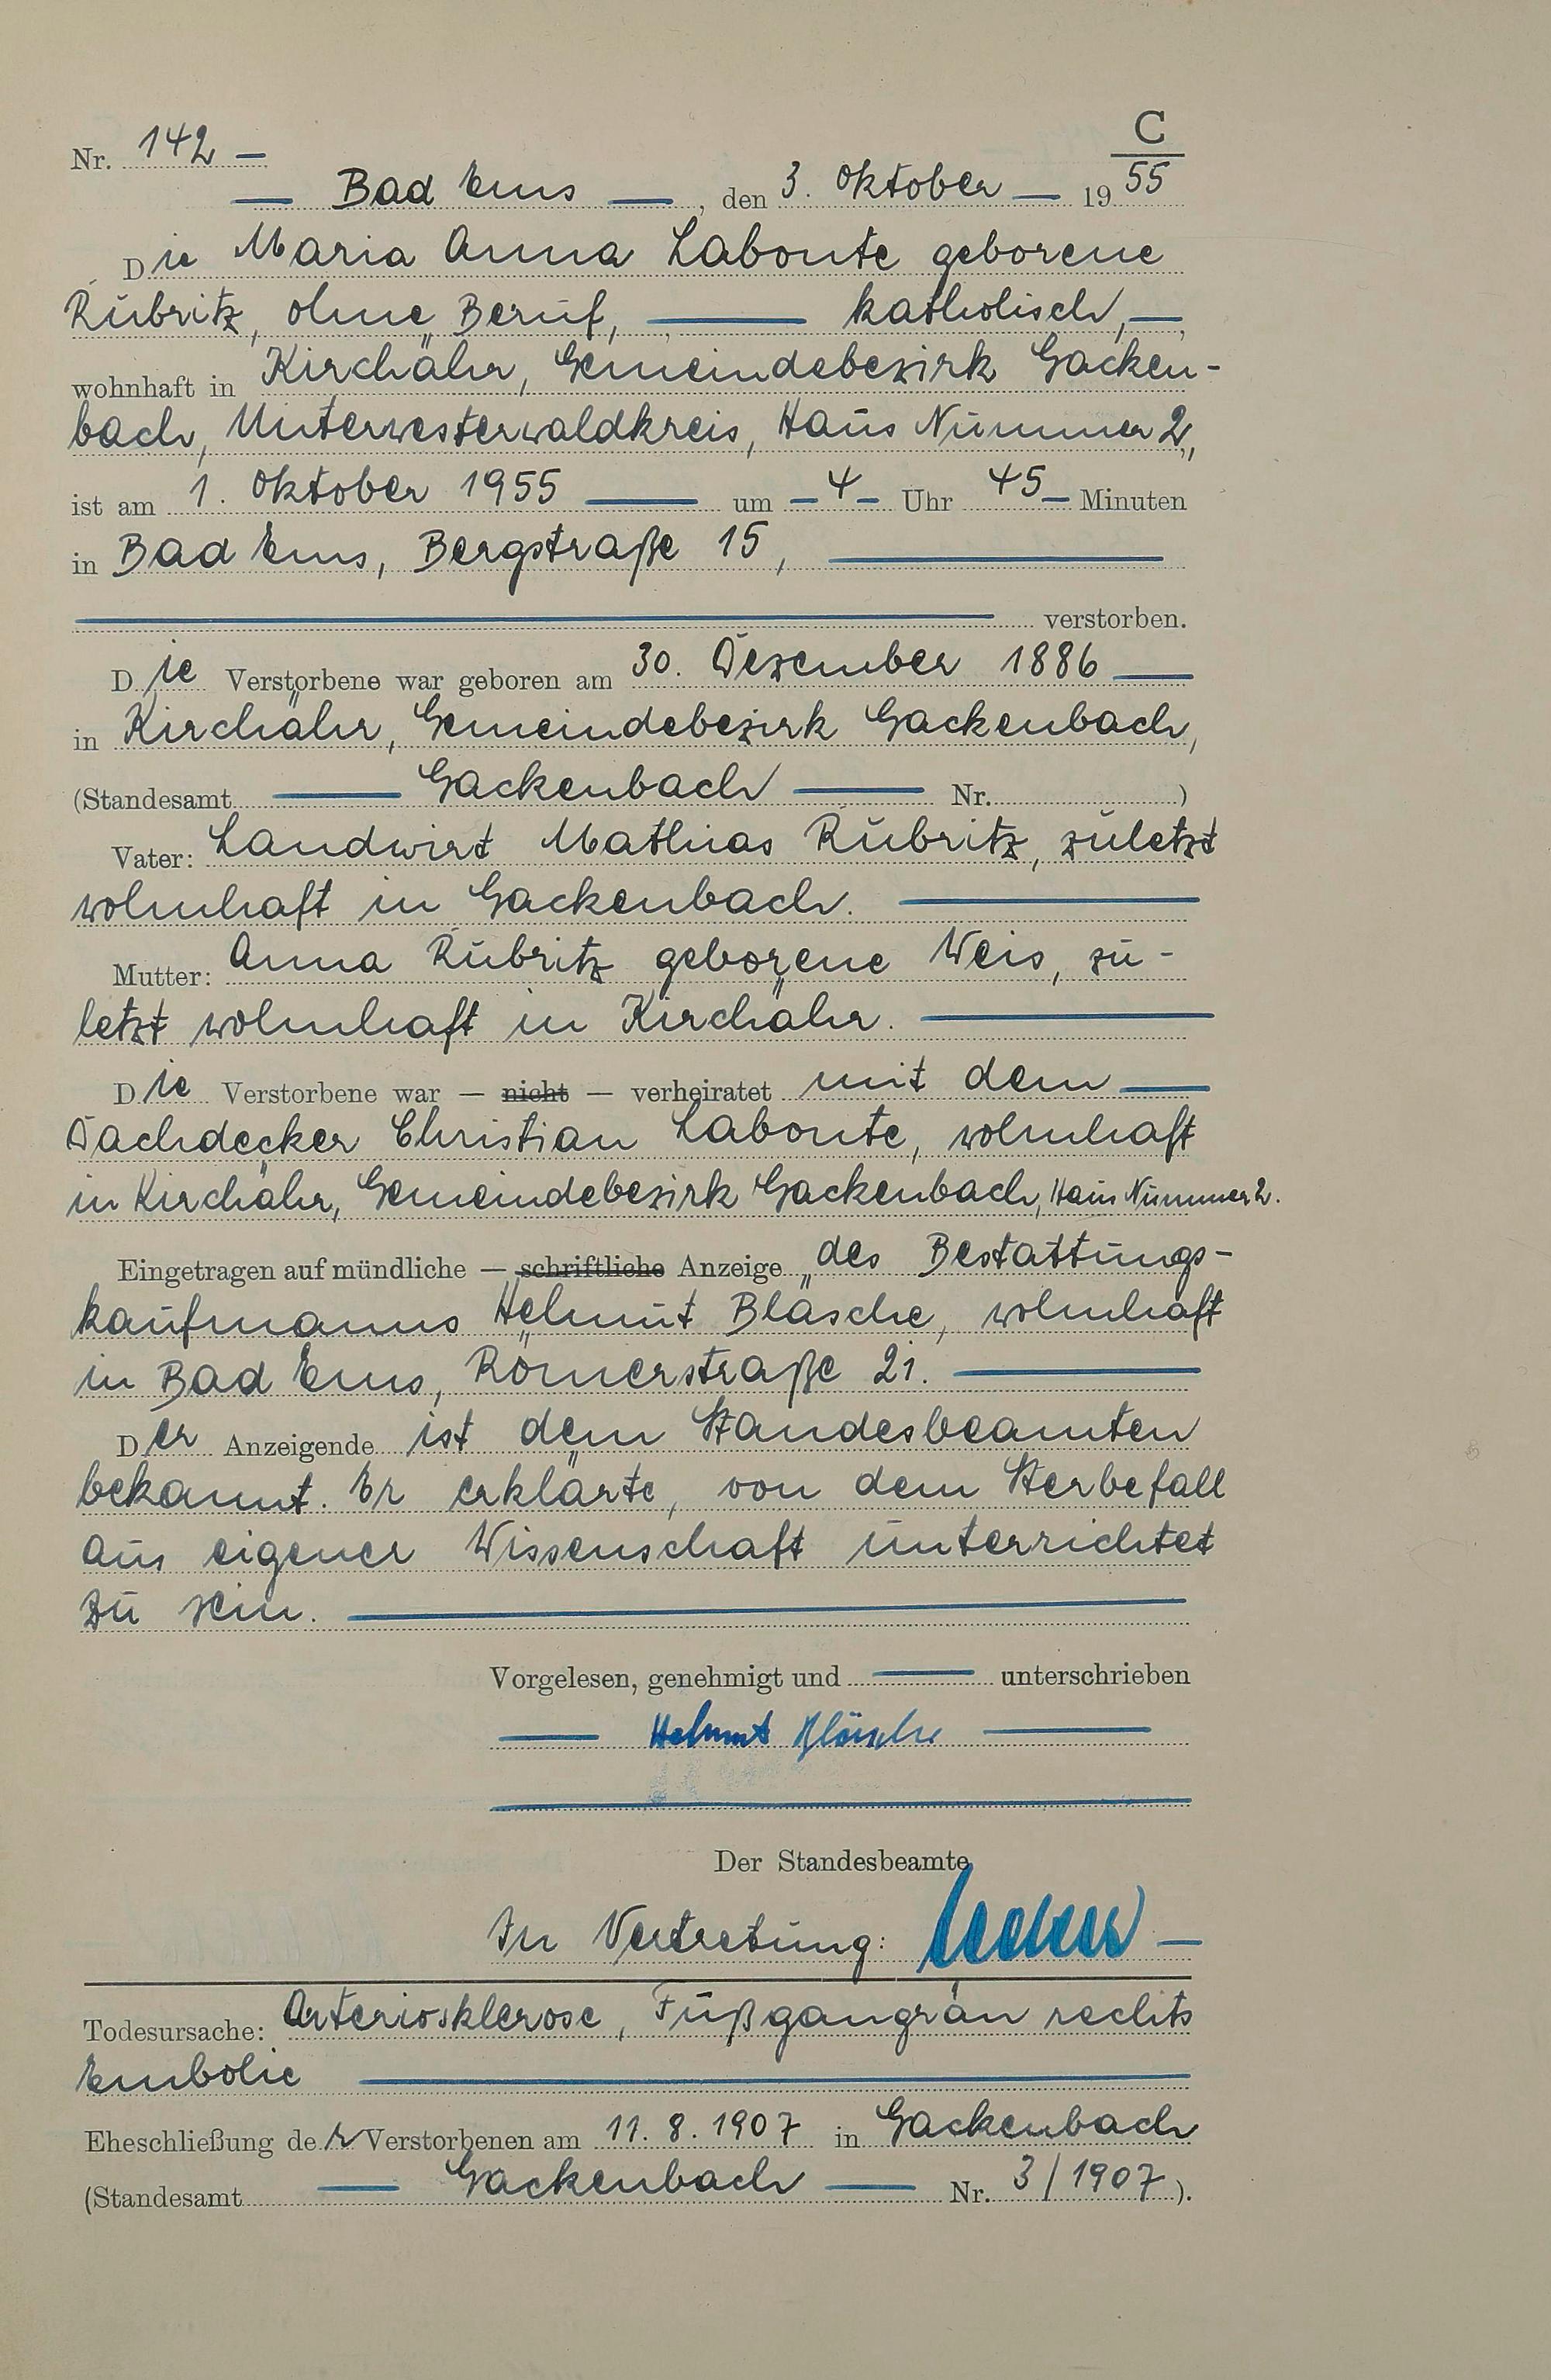 C
Nr. 142 —
— Bad Ems —, den 3. Oktober — 19 55
Die Maria Anna Labonte geborene
Rübritz, ohne Beruf, — katholisch, —
wohnhaft in Kirchähr, Gemeindebezirk Gacken-
bach, Unterwesterwaldkreis, Haus Nummer 2,
ist am 1. Oktober 1955 — um — 4 — Uhr 45 — Minuten
in Bad Ems, Bergstraße 15, —
— verstorben.
Die Verstorbene war geboren am 30. Dezember 1886 —
in Kirchähr, Gemeindebezirk Gackenbach,
(Standesamt — Gackenbach — Nr. )
Vater: Landwirt Mathias Rübritz, zuletzt
wohnhaft in Gackenbach. —
Mutter: Anna Rübritz geborene Weis, zu-
letzt wohnhaft in Kirchähr. —
Die Verstorbene war — nicht — verheiratet mit dem —
Dachdecker Christian Labonte, wohnhaft
in Kirchähr, Gemeindebezirk Gackenbach, Haus Nummer 2.
Eingetragen auf mündliche — schriftliche Anzeige des Bestattungs-
kaufmanns Helmut Bläsche, wohnhaft
in Bad Ems, Römerstraße 21. —
Der Anzeigende ist dem Standesbeamten
bekannt. Er erklärte, von dem Sterbefall
aus eigener Wissenschaft unterrichtet
zu sein. —
Vorgelesen, genehmigt und — unterschrieben
— Helmut Bläsche —
Der Standesbeamte
In Vertretung: —
Todesursache: Arteriosklerose, Fußgangrän rechts
Embolie —
Eheschließung der Verstorbenen am 11. 8. 1907 in Gackenbach
(Standesamt — Gackenbach — Nr. 3/1907 ).